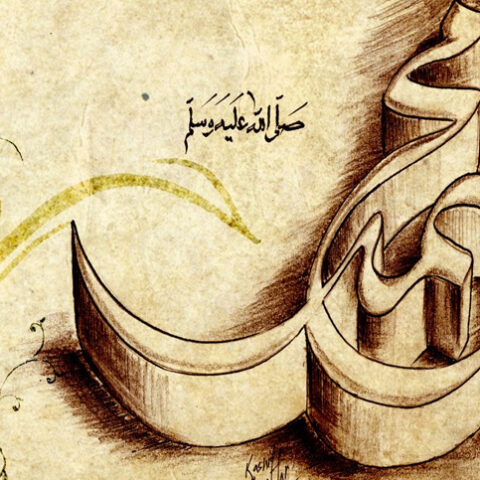 صَلَّى اللهُ عَلَيْهِ وَسَلَّم
محمد